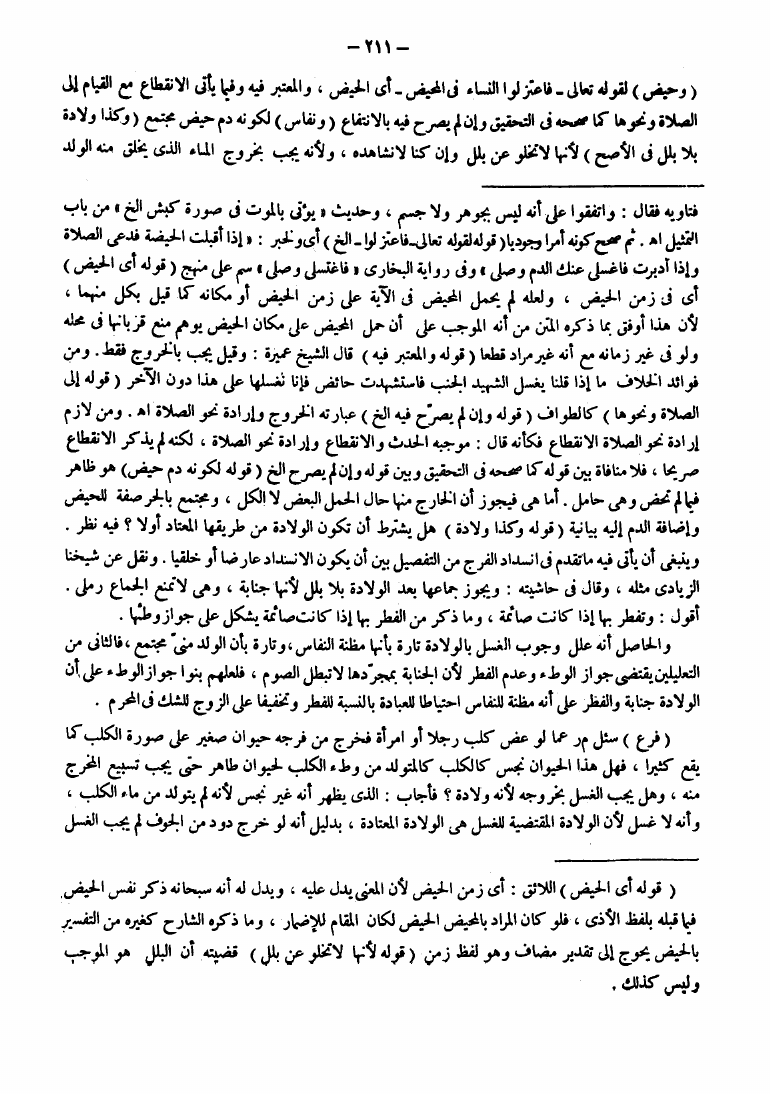 — ٢١١ —
( وحيض ) لقوله تعالى ـ فاعتزلوا النساء فى المحيض ـ أى الحيض ، والمعتبر فيه وفيما يأتى الانقطاع مع القيام إلى
الصلاة ونحوها كما صححه فى التحقيق وإن لم يصرح فيه بالانتفاع ( ونفاس ) لكونه دم حيض مجتمع ( وكذا ولادة
بلا بلل فى الأصح ) لأنها لاتخلو عن بلل وإن كنا لانشاهده ، ولأنه يجب بخروج الماء الذى يخلق منه الولد
فتاويه فقال : واتفقوا على أنه ليس بجوهر ولا جسم ، وحديث « يؤتى بالموت فى صورة كبش الخ » من باب
التمثيل اه . ثم صحح كونه أمرا وجوديا ( قوله لقوله تعالى ـ فاعتزلوا ـ الخ ) أى ولخبر : « إذا أقبلت الحيضة فدعى الصلاة
وإذا أدبرت فاغسلى عنك الدم وصلى » وفى رواية البخارى « فاغتسلى وصلى » سم على منهج ( قوله أى الحيض )
أى فى زمن الحيض ، ولعله لم يحمل المحيض فى الآية على زمن الحيض أو مكانه كما قيل بكل منهما ،
لأن هذا أوفق بما ذكره المتن من أنه الموجب على أن حمل المحيض على مكان الحيض يوهم منع قربانها فى محله
ولو فى غير زمانه مع أنه غير مراد قطعا ( قوله والمعتبر فيه ) قال الشيخ عميرة : وقيل يجب بالخروج فقط . ومن
فوائد الخلاف ما إذا قلنا يغسل الشهيد الجنب فاستشهدت حائض فإنا نغسلها على هذا دون الآخر ( قوله إلى
الصلاة ونحوها ) كالطواف ( قوله وإن لم يصرّح فيه الخ ) عبارته الخروج وإرادة نحو الصلاة اه . ومن لازم
إرادة نحو الصلاة الانقطاع فكأنه قال : موجبه الحدث والانقطاع وإرادة نحو الصلاة ، لكنه لم يذكر الانقطاع
صريحا ، فلا منافاة بين قوله كما صححه فى التحقيق وبين قوله وإن لم يصرح الخ ( قوله لكونه دم حيض ) هو ظاهر
فيما لم تحض وهى حامل . أما هى فيجوز أن الخارج منها حال الحمل البعض لا الكل ، ومجتمع بالجر صفة للحيض
وإضافة الدم إليه بيانية ( قوله وكذا ولادة ) هل يشترط أن تكون الولادة من طريقها المعتاد أولا ؟ فيه نظر .
وينبغى أن يأتى فيه ماتقدم فى انسداد الفرج من التفصيل بين أن يكون الانسداد عارضا أو خلقيا . ونقل عن شيخنا
الزيادى مثله ، وقال فى حاشيته : ويجوز جماعها بعد الولادة بلا بلل لأنها جنابة ، وهى لاتمنع الجماع رملى .
أقول : وتفطر بها إذا كانت صائمة ، وما ذكر من الفطر بها إذا كانت صائمة يشكل على جواز وطئها .
والحاصل أنه علل وجوب الغسل بالولادة تارة بأنها مظنة النفاس ، وتارة بأن الولد منىّ مجتمع ، فالثانى من
التعليلين يقتضى جواز الوطء وعدم الفطر لأن الجنابة بمجرّدها لاتبطل الصوم ، فلعلهم بنوا جواز الوطء على أن
الولادة جنابة والفطر على أنه مظنة للنفاس احتياطا للعبادة بالنسبة للفطر وتخفيفا على الزوج للشك فى المحرم .
( فرع ) سئل مر عما لو عض كلب رجلا أو امرأة فخرج من فرجه حيوان صغير على صورة الكلب كما
يقع كثيرا ، فهل هذا الحيوان نجس كالكلب كالمتولد من وطء الكلب لحيوان طاهر حتى يجب تسبيع المخرج
منه ، وهل يجب الغسل بخروجه لأنه ولادة ؟ فأجاب : الذى يظهر أنه غير نجس لأنه لم يتولد من ماء الكلب ،
وأنه لا غسل لأن الولادة المقتضية للغسل هى الولادة المعتادة ، بدليل أنه لو خرج دود من الجوف لم يجب الغسل
( قوله أى الحيض ) اللائق : أى زمن الحيض لأن المعنى يدل عليه ، ويدل له أنه سبحانه ذكر نفس الحيض
فيما قبله بلفظ الأذى ، فلو كان المراد بالمحيض الحيض لكان المقام للإضمار ، وما ذكره الشارح كغيره من التفسير
بالحيض يحوج إلى تقدير مضاف وهو لفظ زمن ( قوله لأنها لاتخلو عن بلل ) قضيته أن البلل هو الموجب
وليس كذلك .